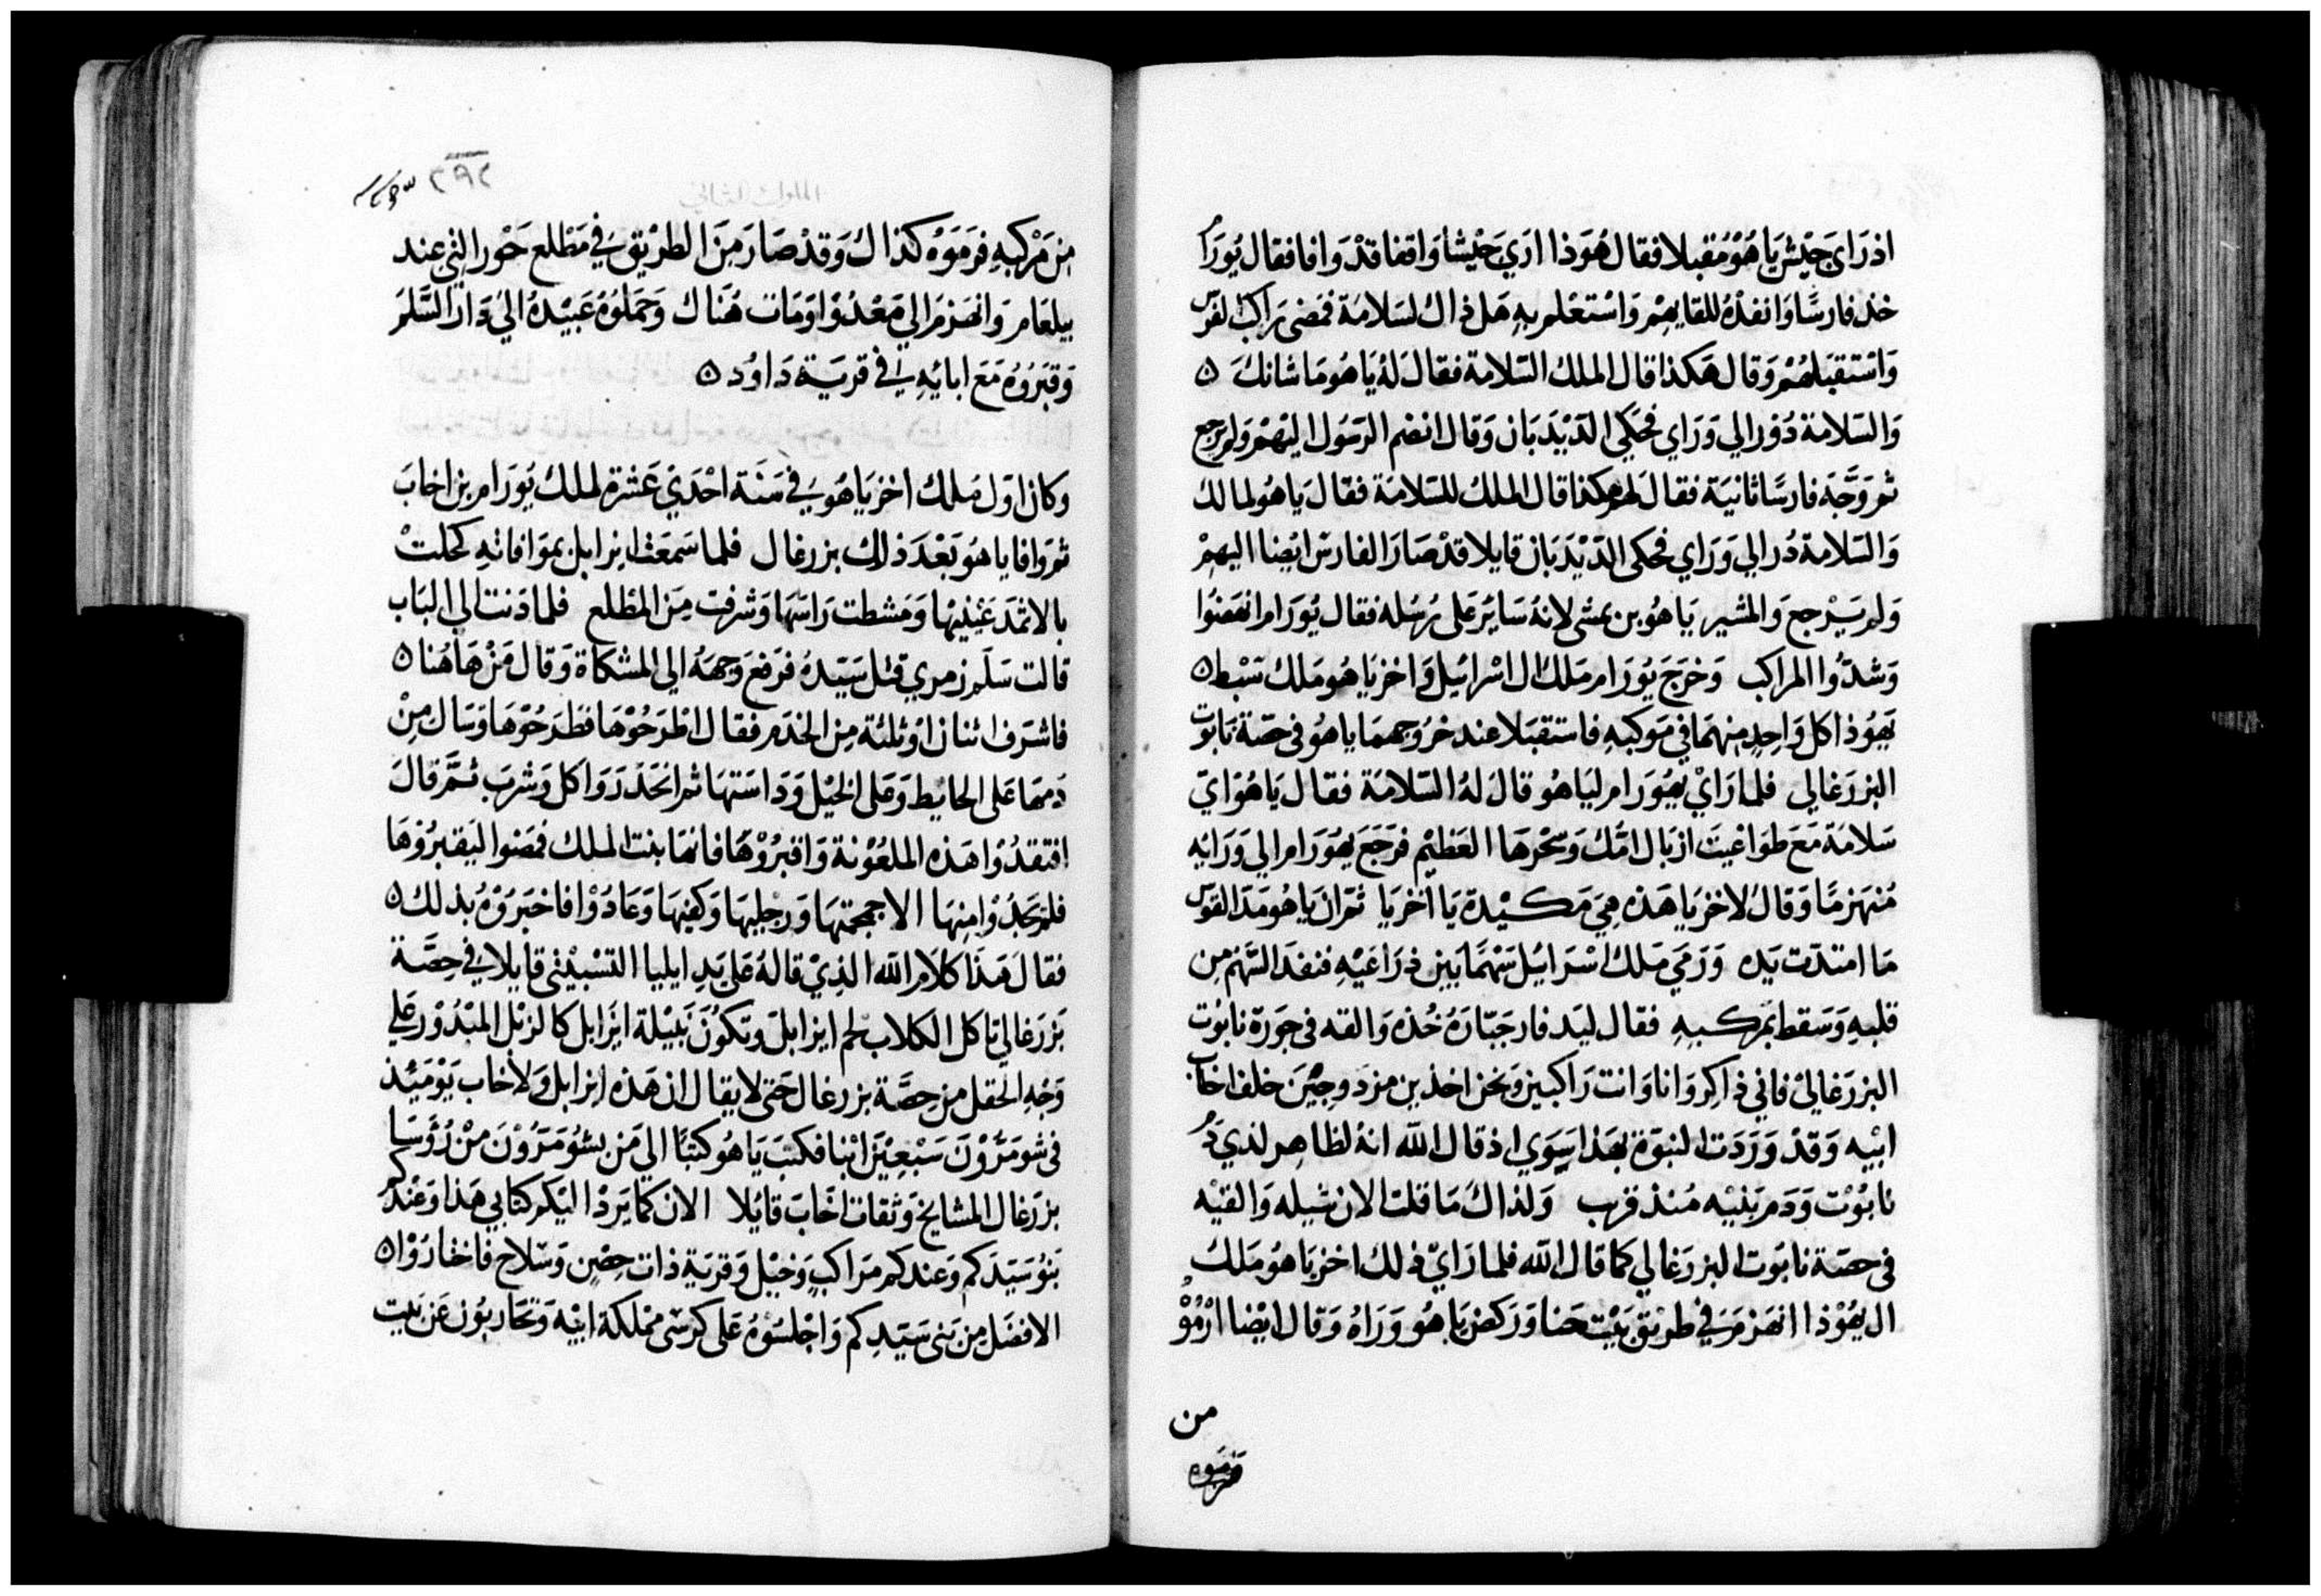 اذ رَاى جَيْش يَاهُوْ مُقبلا فقال هُوَذا ارَي جَيْشا وَاقفا قدْ وَافا فقال يُورَام
خذ فارسًا وَانفذهُ للقايهِمْ وَاسْتعْلم بهِ هَل ذاك لسَلامَة فمَضى رَاكب الفرَس
وَاسْتقبَلهُمْ وَقال هَكذا قال الملك السّلامة فقال لهُ يَاهو مَا شانكَ ٥
وَالسّلامة دُوْر الي وَرَاي فحَكي الدّيْدَبَان وَقال انضم الرَسُول اليْهمْ وَلم يَرجع
ثم وَجَّهَ فارسًا ثانيَة فقال لهم هكذا قال الملك للسّلامَة فقال يَاهُو لما لك
وَالسّلامة دُر الي وَرَاي فحكى الدّيْدَبَان قايلا قدْ صَارَ الفارسَ ايْضا اليهمْ
وَلم يَرْجع وَالمشير يَاهُو بن نمشى لانهُ سَايرَ على رُسُله فقال يُورَام انهَضوُا
وَشدُّوا المرَاكب وَخرَجَ يُورَام مَلك ال اسْرَايُيل وَاخزيَاهُو مَلك سَبْط ٥
يَهُوْذا كل وَاحِدٍ مِنهمَا في مَوكبهِ فاستقبَلا عند خرُوجهمَا ياهُو فى حصّة نابَوت
البزرَغالي فلما رَايْ يهُورَام ليَاهو قال لهُ السّلامَة فقال يَاهُوَ ايّ
سَلامَة مَعَ طوَاغيتَ ازبَال امّك وَسِحْرهَا العَظيْم فرَجَعَ يهُورَام الي وَرَايْه
مُنهَزمًا وَقال لاخزيَا هَذه هِيَ مَكيْدة يَا اخزيَا ثمّ ان يَاهُو مَدّ القوَس
مَا امتدّت يَده وَرَمَي مَلك اسْرَايُيل سَهْمًا بَين ذرَاعَيْهِ فنفذ السَّهْم مِن
قلبهِ وَسَقط بمَركبهِ فقال ليَدفار جَبّارَهُ خُذه وَالقه فى جَورَة نابُوت
البزرَغاليْ فاني ذاكر وَانا وَانت رَاكبين وَنحن اخذين مزدوجيْنَ خلف اخاب
ابيْه وَقدْ وَرَدَت النبوّة بهَذا سِوَي اذ قال الله انهُ لظاهِر لديَ دَم
نابُوْت وَدَم بَنيْه مُنذ قرب وَلذاك مَا قلت الان شيله وَالقيْه
فى حصّة نابَوت البزرَغالي كما قال الله فلما رَايْ ذلك اخزيَاهُو مَلك
ال يهُوْذا انهَزمَ في طريْق بَيْت حَنا وَركض يَاهُو وَرَاهُ وَقال ايْضا ارْمُوْهُ
من
فرَموَه
٢٩٢
مِن مَرْكبهِ فرَمَوْه كذاك وَقدْ صَارَ مِنَ الطرْيق في مَطْلع جَوْر التِي عند
يبلعَام وَانهَزمَ الي مَعْدُوْا وَمَات هُنَاك وَحَملوُهُ عَبيْدهُ اليْ دَار السَّلم
وَقبَرُوهُ مَعَ ابَائِهِ في قريَة دَاوُد ٥
وكان اوّل مُلك اخزيَاهُو في سَنَة احْدَيْ عَشرة لملك يُورَام بن اخابَ
ثم وَافا ياهُو بَعْدَ ذلك بزرغال فلما سَمعَت ايزابل بموَافاته كحلتْ
بالاثمَد عَيْنيْها وَمشطت رَاسَها وَشرفت مِنَ المطلع فلما دَنت الي البَاب
قالت سَلَم زمري قتل سَيّدهُ فرَفعَ وَجهَهُ الي المشكاة وَقال مَنْ هَاهُنا ٥
فاشرَف اثنان اوْ ثلثة مِن الخدَم فقال اطْرَحُوْهَا فطرَحُوْهَا وَسَال مِنْ
دَمهَا عَلى الحايط وَعَلى الخيْل وَدَاسَتهَا ثم انحَدَرَ وَاكل وَشربَ ثمَّ قالَ
افتقدُوْا هَذه الملعُوْنة وَاقبرُوْهَا فانهَا بنت الملك فمَضوا ليَقبرُوْهَا
فلم يَجدُوْا مِنهَا الا جمجمَتهَا وَرجليهَا وَكفيْهَا وَعَادُوْا فاخبَروُهُ بذلك ٥
فقالَ هَذا كلام الله الذِيْ قالهُ عَلى يَدِ ايليا التسْبيْثى قايلا في حِصَّة
بَزرَغالي تاكل الكلاب لحم ايزابلَ وَتكوْنَ نَبيْلة ايزَابل كالزبْل المبْذوْر عَلي
وَجْهِ الحقل من حِصَّة بزرغال حَتى لا يقال ان هَذه ايزابل وَلاخاب يَوْمَيْذ
فى شومَرْوْنَ سَبْعِيْنَ ابنا فكتبَ يَاهُو كتبًا الي مَن بشوُمَرُوْنَ مِنْ رُؤسَا
بزرَغال المشايخ وَثقات اخابَ قايْلا الان كما يَرِدْ اليكم كتابي هَذا وَعْندكم
بَنوُ سَيّدكم وَعندكم مَرَاكب وَخيْل وَقريَة ذات حِصْن وَسلاح فاختارَوْا ٥
الافضَل مِن بَني سَيّدِكم وَاجْلسُوْهُ عَلى كرسْى مَمْلكة ابيْهَ وَتحَاربُون عَن بَيت